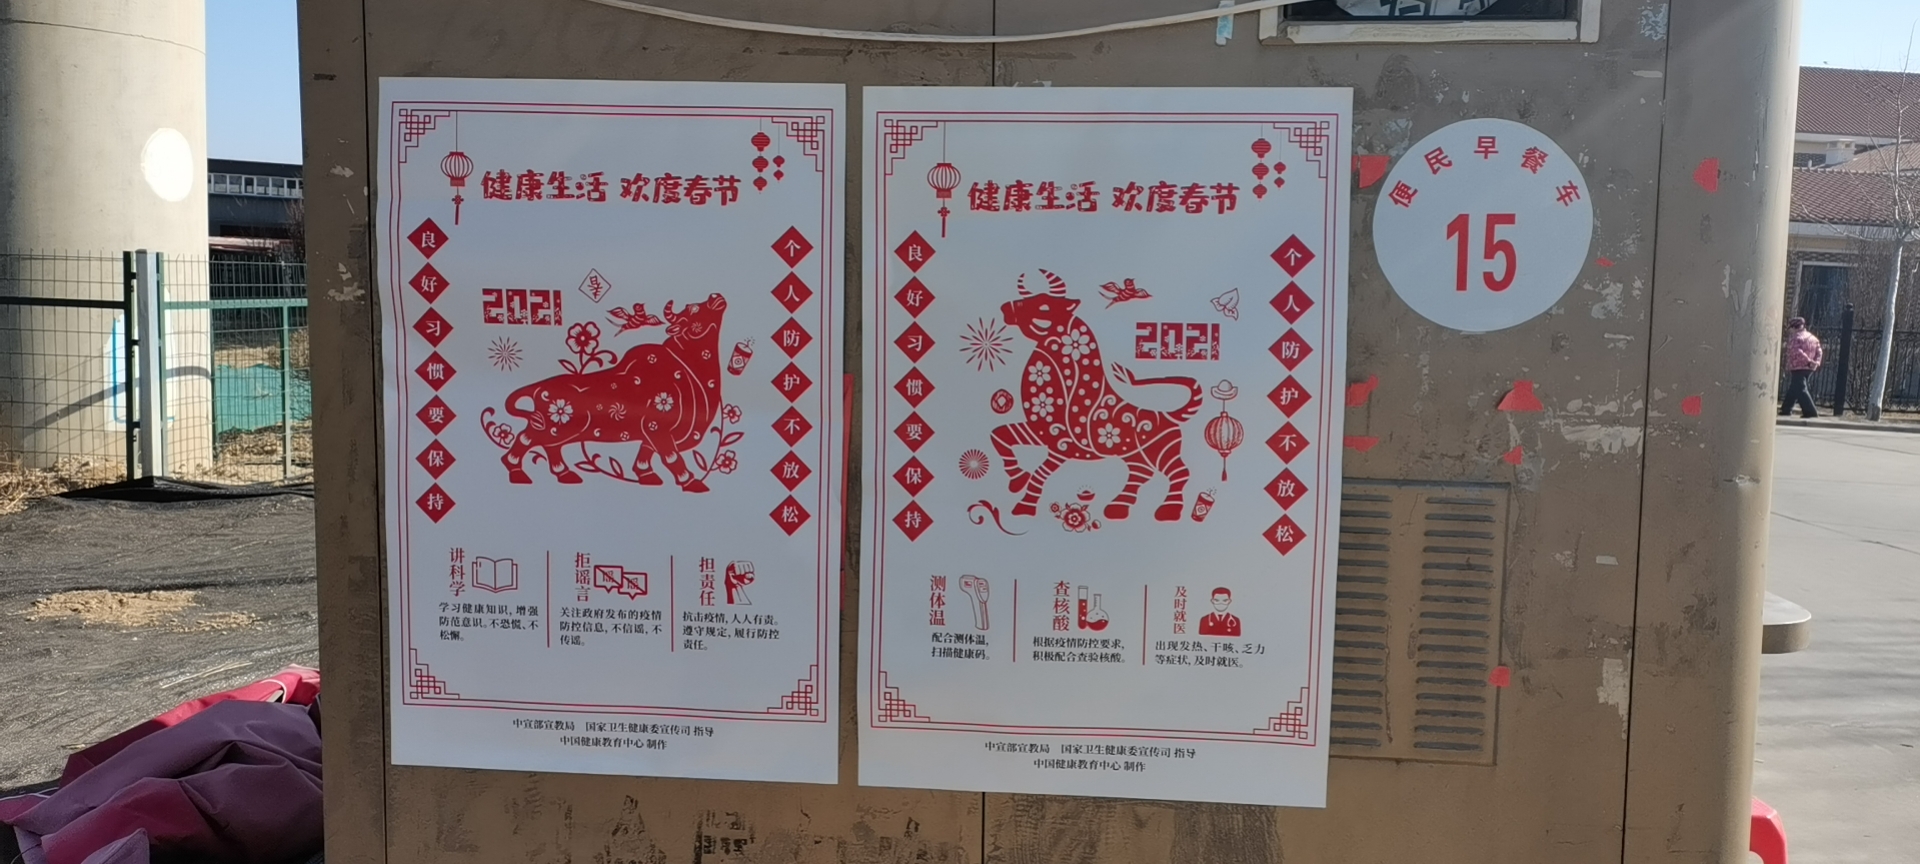 健康生活 欢度春节
良好习惯要保持
个人防护不放松
2021
春
讲科学
学习健康知识，增强
防范意识。不恐慌、不
松懈。
拒谣言
关注政府发布的疫情
防控信息，不信谣，不
传谣。
担责任
抗击疫情，人人有责。
遵守规定，履行防控
责任。
中宣部宣教局 国家卫生健康委宣传司 指导
中国健康教育中心 制作
健康生活 欢度春节
良好习惯要保持
个人防护不放松
2021
测体温
配合测体温，
扫描健康码。
查核酸
根据疫情防控要求，
积极配合查验核酸。
及时就医
出现发热、干咳、乏力
等症状，及时就医。
中宣部宣教局 国家卫生健康委宣传司 指导
中国健康教育中心 制作
便民早餐车
15